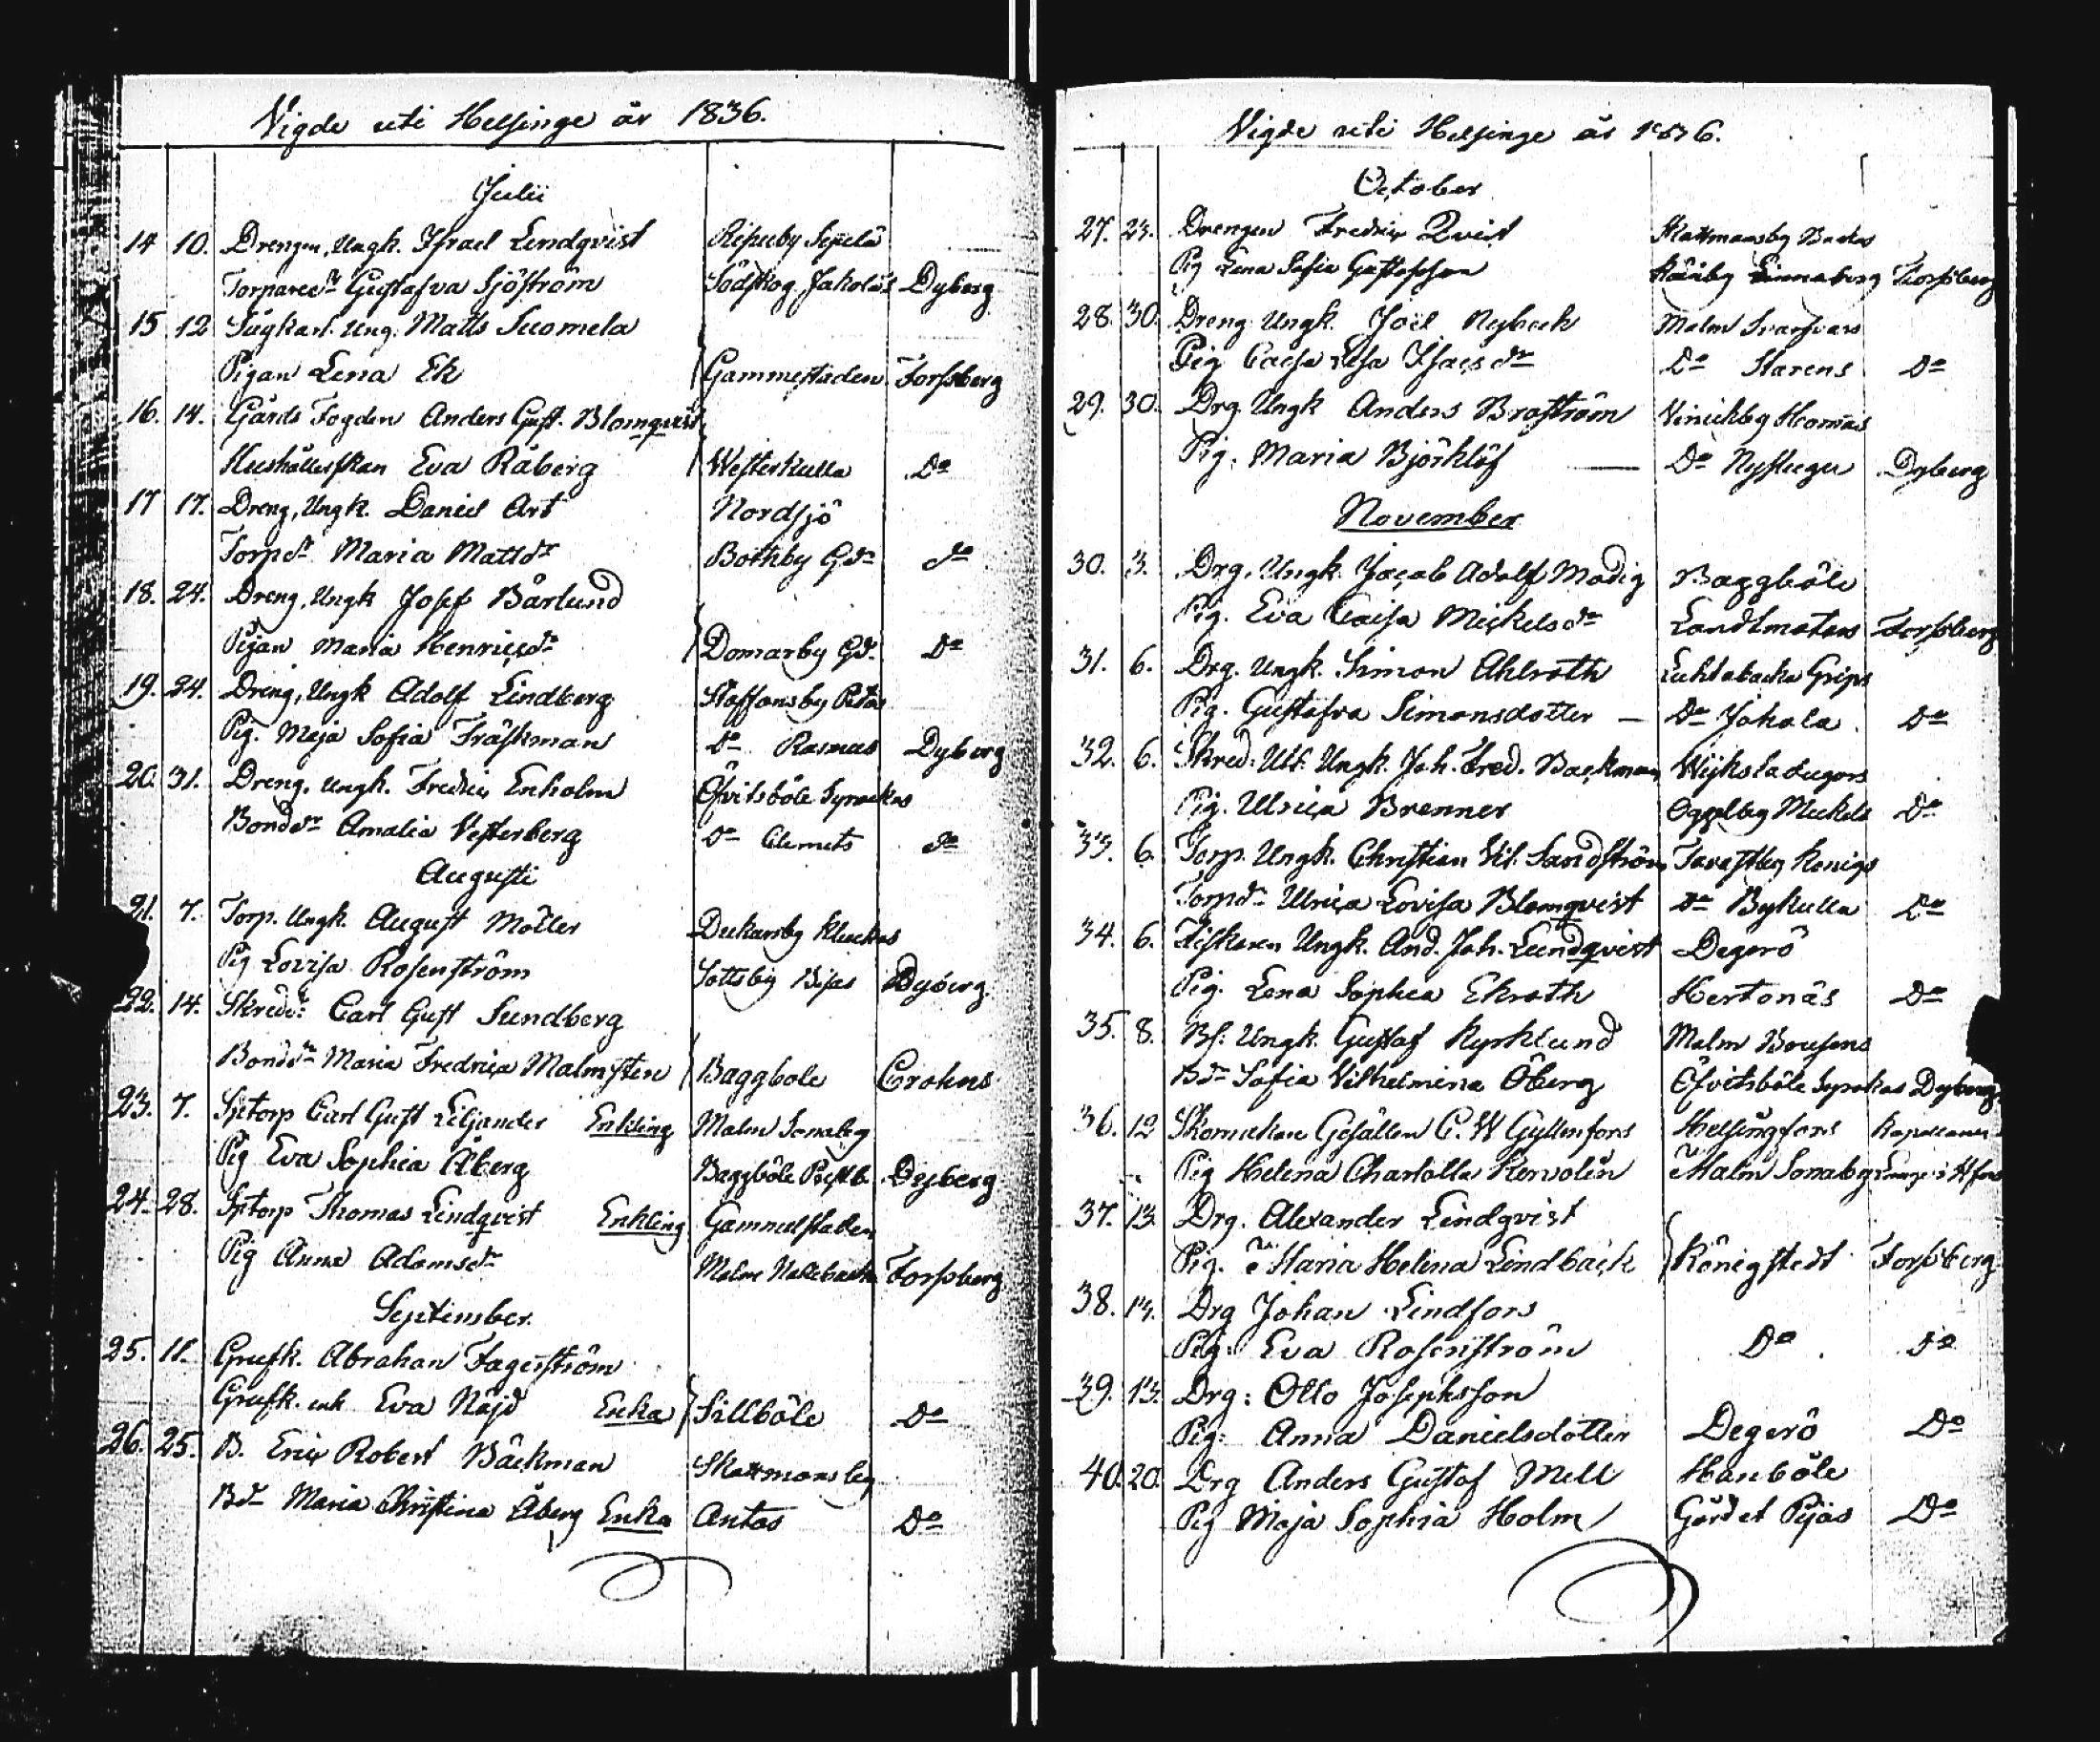 Vigde uti Helsinge år 1836.
Julii
14 10. Drengen, Ungk. Israel Lindqvist Ripuby Sepelä
Torpared:r Gustafva Sjöström Sodskog Jakolas Dyberg
15 12 Sågkarl. Ung. Matts Suomela
Pigan Lena Ek Gammelstaden Forssberg
16. 14. Gårds Fogden Anders Gust. Blomqvist
Hushållerskan Eva Råberg Westerkulla Do
17 17. Dreng, Ungk. Daniel Art Nordsjö
Torpdr Maria Mattsdr Bothby Gdn do
18. 24. Dreng, Ungk Josef Bärlund
Pigan Maria Henricsdr Domarby Gd. Do
19. 24. Dreng, Ungk Adolf Lindberg Staffansby Petas
Pig. Maja Sofia Träskman Do Rasmas Dyberg
20. 31. Dreng. Ungk. Fredric Enholm Öfvitsböle Syrackas
Bonddr Amalia Vesterberg Do Clemets do
Augusti
21. 7. Torp. Ungk. August Möller Dickarsby Kluckas
Pig Lovisa Rosenström Sottsby Dyberg.
22. 14. Skredd. Carl Gust Sundberg
Bonddr Maria Fredrica Malmsten Baggbole Crohns
23. 7. Sptorp Carl Gust Liljander Enkling Malm Sonaby
Pig Eva Sophia Åberg Baggböle Dyberg
24. 28. Sptorp Thomas Lindqvist Enkling Gammelstaden
Pig Anna Adamsdr Malm Nallebacka Forssberg
September.
25. 11. Grufk. Abraham Fagerström
Grufk. enk Eva Nöjd Enka Sillböle Do
26. 25. B. Eric Robert Bäckman Skattmansby
Bdr Maria Christina Åberg Enka Antas Do
Vigde uti Helsinge år 1836.
October
27. 23. Drengen Fredric Qvist Skattmansby Backas
Pig Lena Sofia Gustafsson Forssberg
28. 30. Dreng Ungk. Joël Nybeck Malm Svarfvars
Pig Caisa Lisa Isacsdr Do Starens Do
29. 30. Drg. Ungk Anders Broström Vinikby Homas
Pig. Maria Björklöf — Do Nystugu Dyberg
November
30. 3. Drg. Ungk. Jacob Adolf Modig Baggböle
Pig. Eva Caisa Mickelsdr Landtmäters Forssberg
31. 6. Drg. Ungk. Simon Ahlroth Luhtabacka Grips
Pig. Gustafva Simonsdotter — Do Jokala. Do
32. 6. Skred. Ungk. Joh. Fred. Backman Wiks Ladugård
Pig. Ulrica Brenner Oggelby Mickels Do
33. 6. Torp. Ungk. Christian Vil. Sandström Tavastby Konigs
Torpdr Ulrica Lovisa Blomqvist Do Bykulla Do
34. 6. Fiskaren Ungk. And. Joh. Lundqvist Degerö
Pig. Lena Sophia Ekroth Hertonäs Do
35. 8. Bs. Ungk. Gustaf Kyrklund Malm Bousens
Bdr Sofia Vilhelmina Öberg Öfvitsböle Syrakas Dyberg.
36. 12 Skomakare Gesällen C. W Gyllenfors Helsingfors Kapellanen
Pig Helena Charlotta Kervolin Malm Sonaby
37. 13. Drg. Alexander Lindqvist
Pig. Maria Helena Lindbäck Königstedt Forssberg
38. 13. Drg Johan Lindfors
Pig: Eva Rosenström Do. Do
39. 13. Drg: Otto Josephsson
Pig: Anna Danielsdotter Degerö Do
40. 20. Drg Anders Gustaf Mell Hanböle
Pig Maja Sophia Holm Gårdet Pijas Do